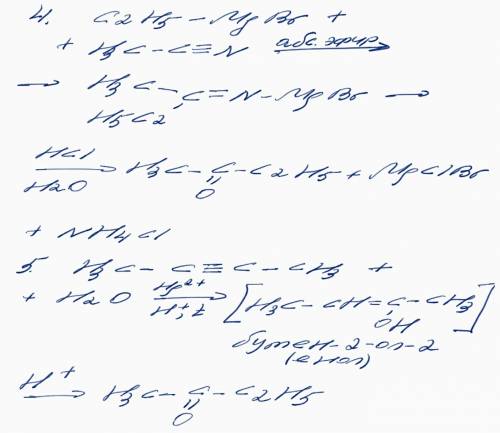 4. C2H5-MgBr +
+ H3C-C≡N абс. эфир →
→ H3C-C=N-MgBr →
H5C2
HCl
H2O
→ H3C-C-C2H5 + MgClBr
O
+ NH4Cl
5. H3C-C≡C-CH3 +
+ H2O Hg2+ → [H3C-CH=C-CH3]
H+, t
OH
бутен-2-ол-2
(енол)
H+ → H3C-C-C2H5
O